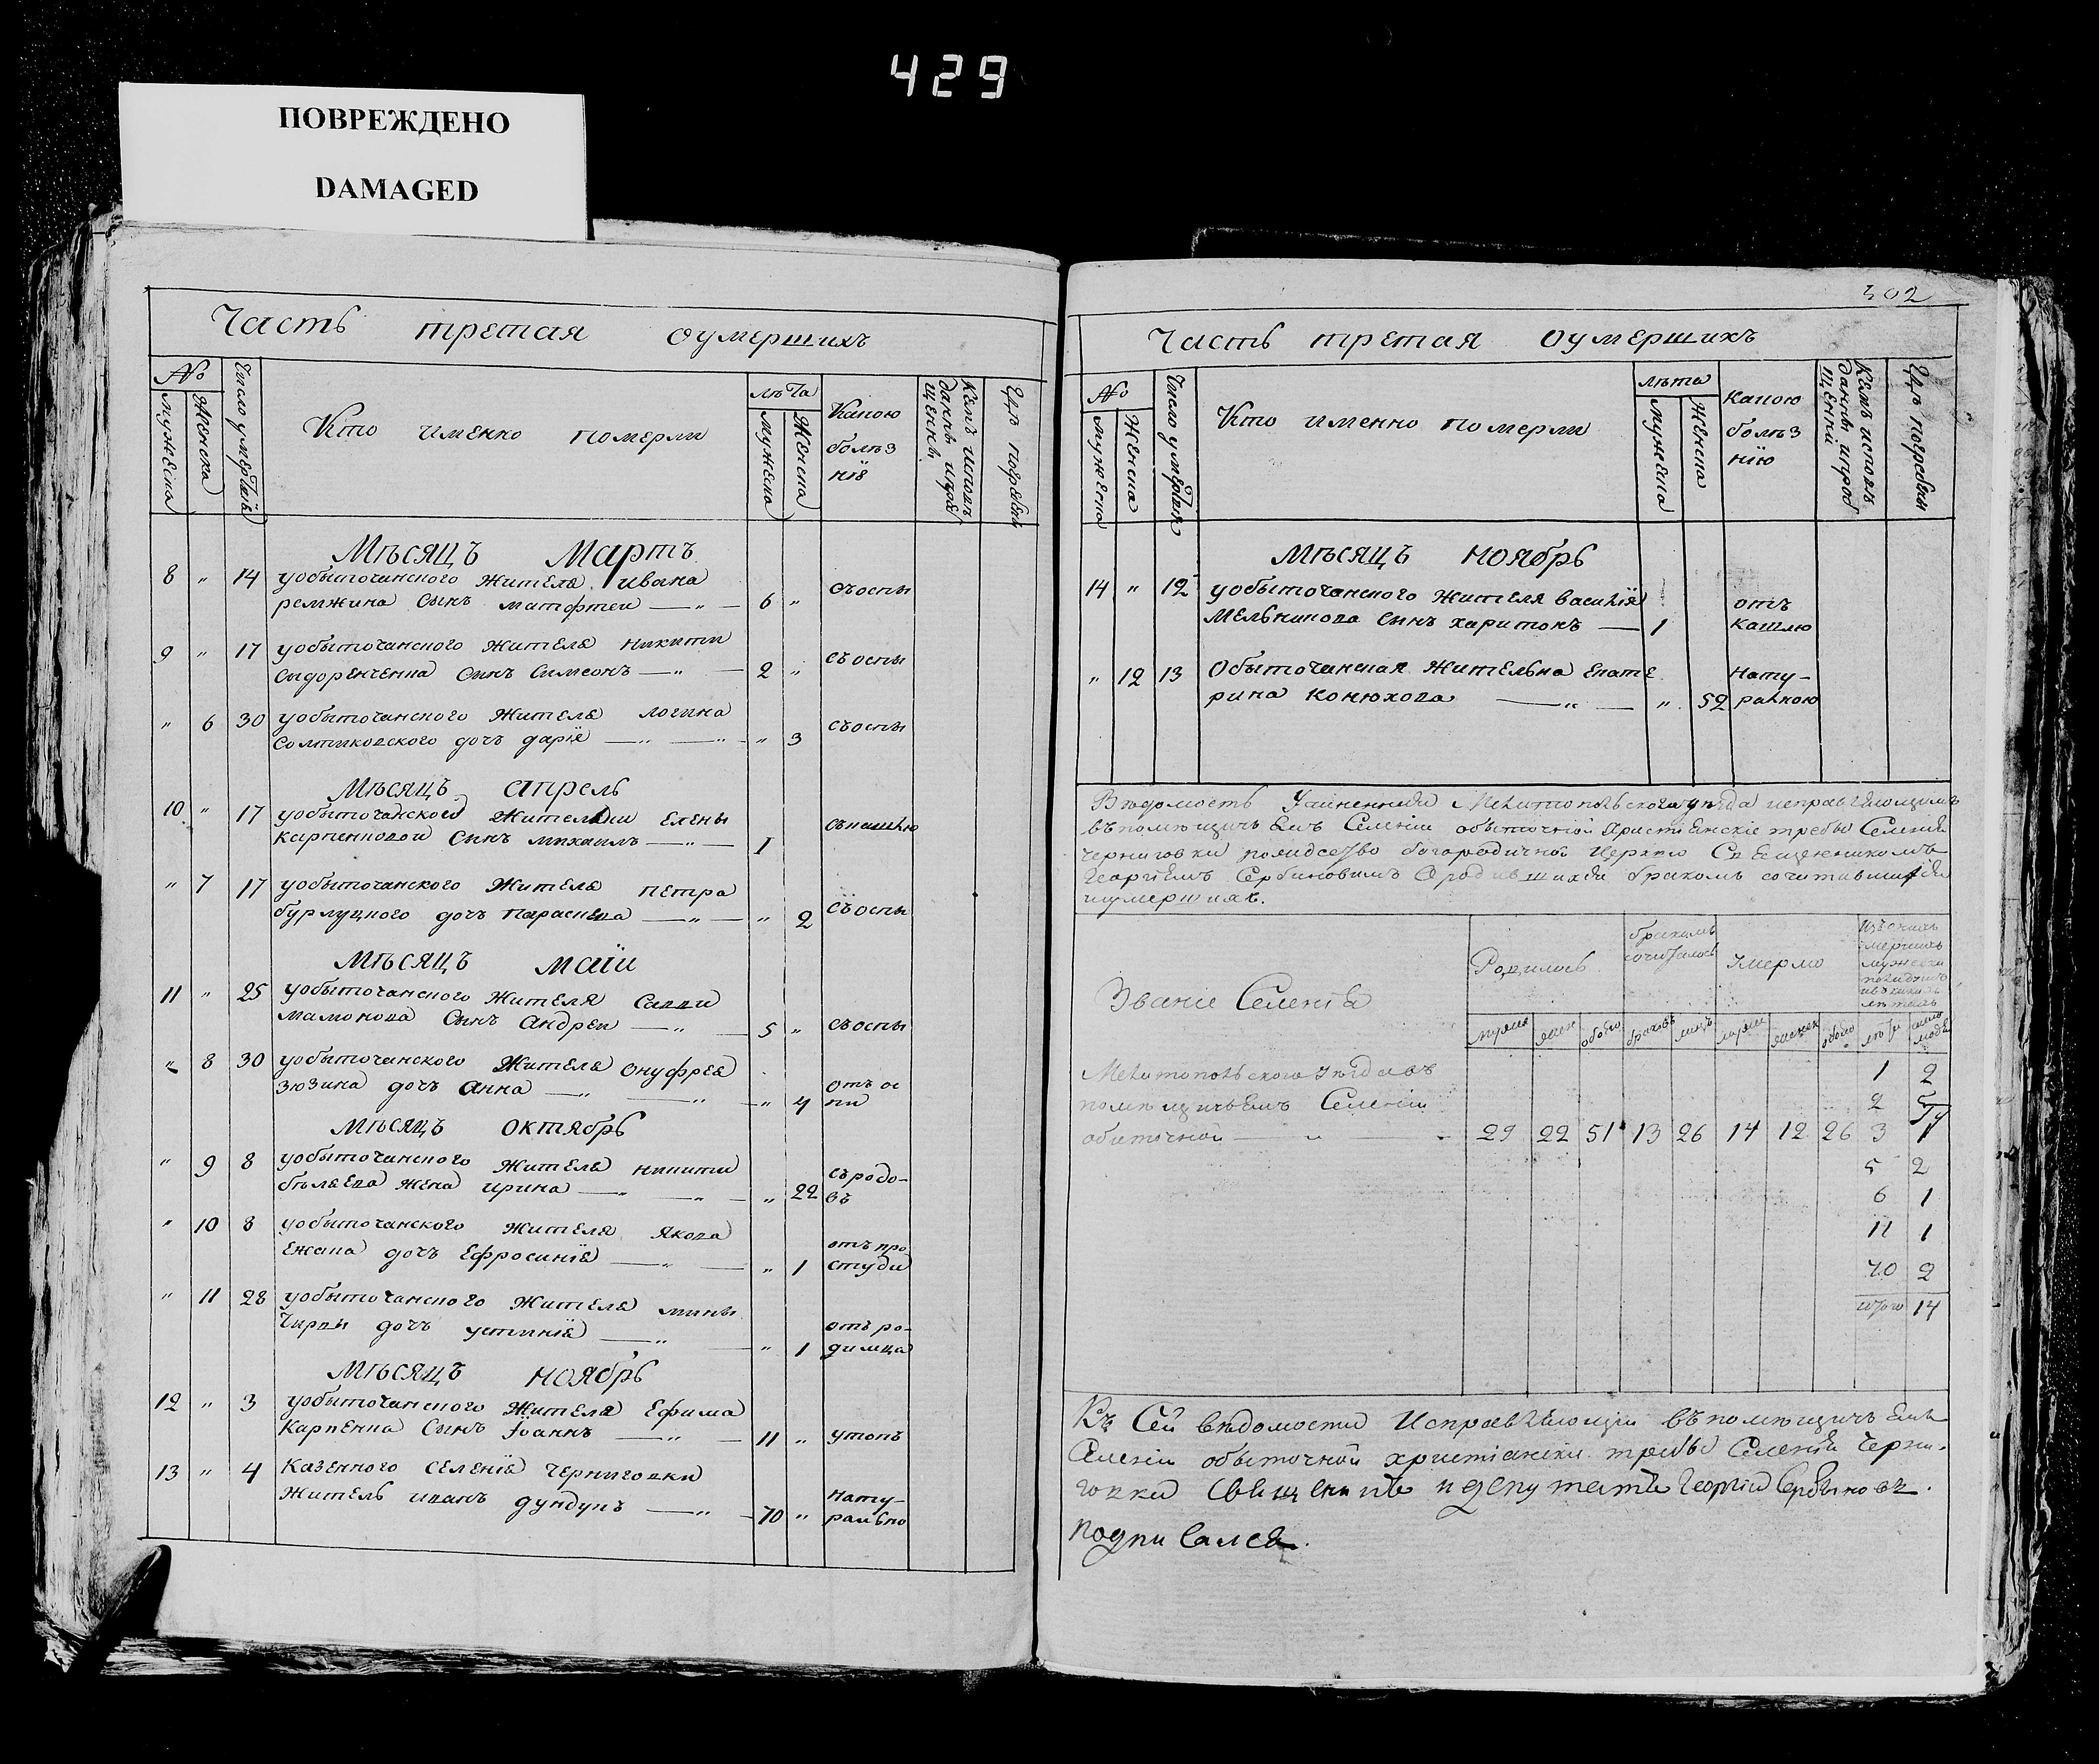 429
ПОВРЕЖДЕНО
DAMAGED
Часть третая оумершихъ
№
мужеска
Женска
Число умертвїя
Кто именно померли
лѣта
мужеска
Женска
Какою болѣз нїе
Кемъ исповъ даны
Где погребены
Мѣсяцъ Мартъ
8 „ 14 уобыточанского Жителя ивана
ремжина сынъ матфтеи — „ — 6 „ съоспы
9 „ 17 уобыточанского Жителя никити
сидоренченка сынъ Симеонъ — „ — 2 „ съоспы
„ 6 30 уобыточанского Жителя логина
Солтиковского дочъ дарїя — „ — „ — „ 3 съоспы
Мѣсяцъ апрель
10 „ 17 уобыточанской Жителки Елены
карпенковой Сынъ михаилъ — „ — 1 съкашлю
„ 7 17 уобыточанского Жителя петра
бурлуцкого дочъ параскева — „ — „ 2 съоспы
Мѣсяцъ маїи
11 „ 25 уобыточанского Жителя Савви
мамонова Сынъ андреи — „ — 5 „ съоспы
„ 8 30 уобыточанского Жителя онуфрея
зюзина дочъ анна — „ — „ — „ 4 отъ ос
пи
Мѣсяцъ октябрь
„ 9 8 уобыточанского Жителя никити
бѣляева жена ирина — „ — „ — „ 22 съродо-
въ
„ 10 8 уобыточанского Жителя якова
Ежака дочъ Ефросинїя — „ — „ 1 отъ про
студи
„ 11 28 уобыточанского Жителя мины
Чирвы дочъ устинїя — „ — „ 1 отъ ро-
димца
Мѣсяцъ ноябрь
12 „ 3 уобыточанского Жителя Ефима
Карпенка Сынъ їоаннъ — „ — 11 „ утопъ
13 „ 4 Казенного селенїя черниговки
Житель иванъ дундукъ — „ — 70 „ нату-
рально
302
Часть третая оумершихъ
№
мужеска
Женска
Число умертвїя
Кто именно померли
лѣта
мужеска
Женска
Какою
болѣз
нїю
Кемъ исповъ даны
Где погребены
Мѣсяцъ ноябрь
14 „ 12 уобыточанского Жителя василїя
Мельникова сынъ харитонъ — 1 отъ
кашлю
„ 12 13 Обыточанская Жителька екате
рина конюхова — „ — „ 52 нату-
ралною
Вѣдомость Учиненная Мелитопольского уѣзда исправляющимъ
въпомѣщичьемъ Селенїи обыточной христїянскїе требы Селенїя
черниговки рождество богородичной Церкви Священникомъ
Георгїемъ Сербиновимъ О родившихся бракомъ сочитавшихся
иумершихъ.
Званїе Селенїя
Родилось
бракомъ
сочиталось
Умерло
мужеска
женск
обоего
браковъ
лицъ
мужеск
женск
обоего
лѣты
число
людей
Мелитопольского уѣзда въ
помѣщичьемъ Селенїи
обиточной — „ — 29 22 51 13 26 14 12 26
1 2
2 5
3 1
5 2
6 1
11 1
70 2
итого 14
Къ Сей вѣдомости Исправляющїи въпомѣщичьемъ
Селенїи обыточной христїански требы Селенїя Черни-
говки Священникъ идепутатъ Георгїи Сербиновъ.
подписался.